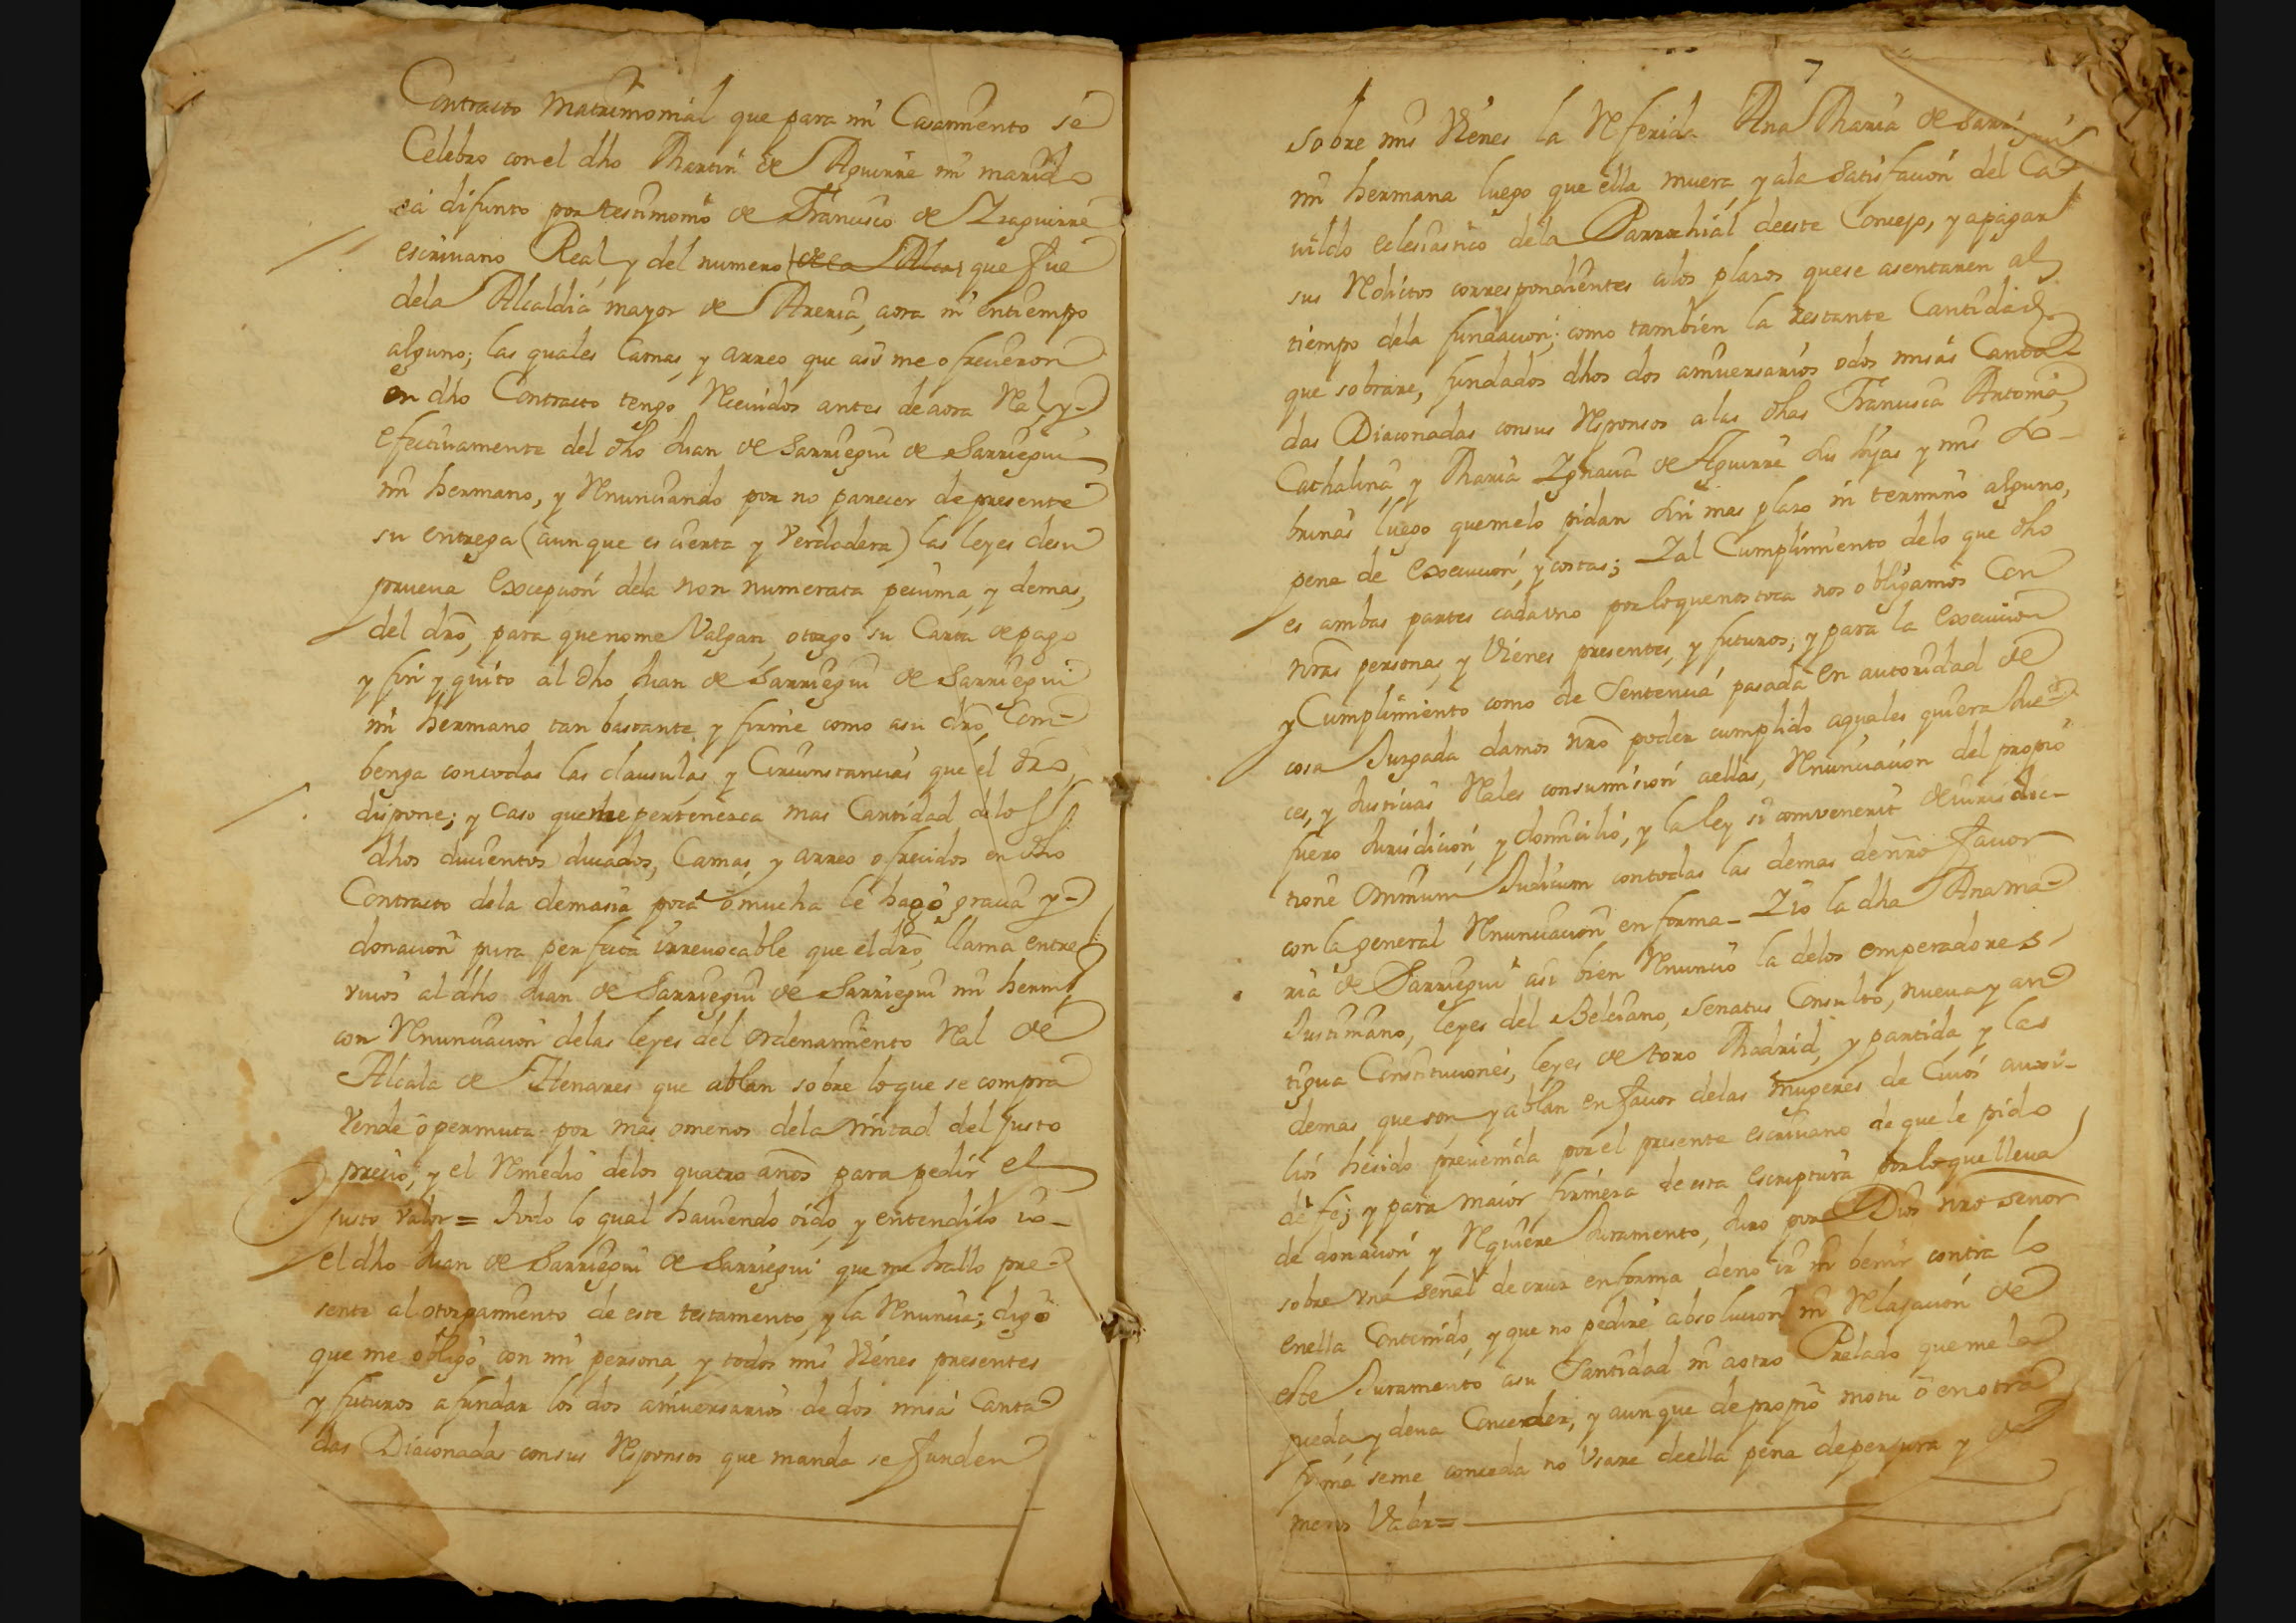 Contracto Matrimonial que para mi Casamiento se
Celebro con el dho Martin de Aguirre mi marido
ia difunto por testimonio de Francisco de Yraguirre
escrivano Real y del numero de la Alca que fue
dela Alcaldia mayor deAreria, aora ni entiempo
alguno; las quales Camas, y arreo que asi me ofrecieron
en dho Contracto tengo Recividos antes de aora Real y
efectivamente del dho Juan de Sarriegui de Sarriegui
mi hermano, y Renunciando por no parecer de presente
su entrega (aunque es cierta y Verdadera) las leyes desu
prueva excepcion dela non numerata pecunia, y demas,
del dro, para que no me Valgan, otorgo su Carta de pago
y fin y quito al dho Juan de Sarriegui de Sarriegui
mi hermano tan bastante, y firme como asu dro, Com-
benga con todas las clausulas, y Circunstancias que el dro,
dispone; y caso que le pertenezca mas Cantidad delos
dhos ducientos ducados, Camas, y arreo ofrecidos en dho
Contracto dela demasia poca o mucha le hago gracia y
donacion pura perfecta irrevocable que el dro, llama entre
vivos al dho Juan de Sarriegui de Sarriegui mi hermo,
con Renunciacion delas leyes del ordenamiento Real de
Alcala de Henares que ablan sobre loque se compra
Vende o permuta por mas omenos dela mitad del justo
precio; y el Remedio delos quatro años para pedir el
justo valor = Todo lo qual haviendo oido, y entendido io
el dho Juan de Sarriegui de Sarriegui que me hallo pre-
sente al otorgamiento de este testamento, y la Renuncia; digo
que me obligo con mi persona, y todos mis Vienes presentes
y futuros a fundar los dos aniversarios de dos misas Canta-
das Diaconadas consus Responsos que manda se funden
7
sobre mis Vienes la Referida Ana Maria de Sarriegui
mi hermana luego que ella muera y ala Satisfacion del Ca-
vildo eclesiastico dela Parrochial deeste Concejo, y apagar
sus Reditos correspondientes alos plazos quese asentaren al
tiempo dela fundacion; como tambien la restante Cantidad
que sobrare, fundados dhos dos aniversarios odos misas Canta-
das Diaconadas consus Responsos alas dhas Francisca Antonia,
Cathalina y Maria Ygnacia de Aguirre sus hijas y mis so-
brinas luego quemelo pidan sin mas plazo ni termino alguno,
pena de execucion, y costas; Y al Cumplimiento delo que dho
es ambas partes cadauno por loquenostoca nos obligamos con
nras personas, y Vienes presentes, y futuros; y para la execucion
y Cumplimiento como de Sentencia pasada en autoridad de
cosa Juzgada damos nro poder cumplido aquales quiera Jue-
ces, y Justicias Reales consumision aellas, Renunciacion del propio
fuero Jurisdicion, y domicilio, y la ley si convenerit de jurisdic-
tione Omnium Judicum contodas las demas denro favor
con la general Renunciacion en forma - Y io la dha Anama-
ria de Sarriegui asi bien Renuncio la delos emperadores
Justiniano, leyes del Beleiano, Senatus Consulto, nueva y an
tigua Constituciones, leyes de toro Madrid, y partida, y las
demas que son yablan en favor delas mugeres de Cuios auxi-
lios hesido prevenida por el presente escrivano de que le pido
dé fe; y para maior firmeza de esta escriptura por loque lleva
de donacion, y Requiere Juramento, Juro por Dios nro señor
sobre una señal de cruz en forma deno ir ni benir contra lo
enella Contenido, y que no pediré absolucion ni Relajacion de
este Juramento asu Santidad ni aotro Prelado que me la
pueda y deva Conceder, y aunque de propio motu o en otra
forma seme conceda no Usare deella pena deperjura y de
menos Valer =